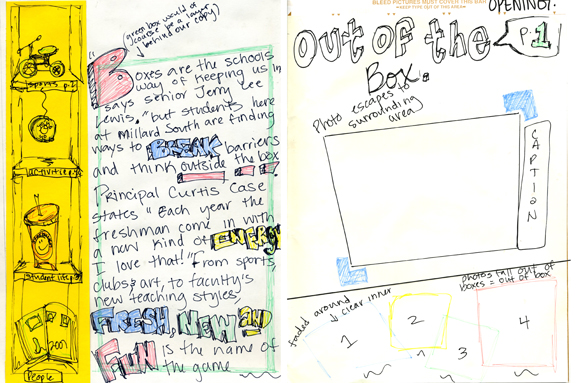 green box would of
course be a layer
behind our copy)
"Boxes are the schools
way of keeping us in
says senior Jerry Lee
Lewis, "but students here
at Millard South are finding
ways to BREAK barriers
and think outside the box
Principal Curtis Case
states "Each year the
freshman come in with
a new kind of ENERGY
I love that!" From sports,
clubs & art, to faculty's
new teaching styles,
FRESH, NEW and
FUN is the name of
the game
sports p.2
activities
Student life
2001
People
BLEED PICTURES MUST COVER THIS BAR
OPENING:
OUT OF the
BOX.
p. 1
Photo escapes to
surrounding
area
CAPTION
faded around
clear inner
photos fall out of
boxes = out of box
1
2
3
4